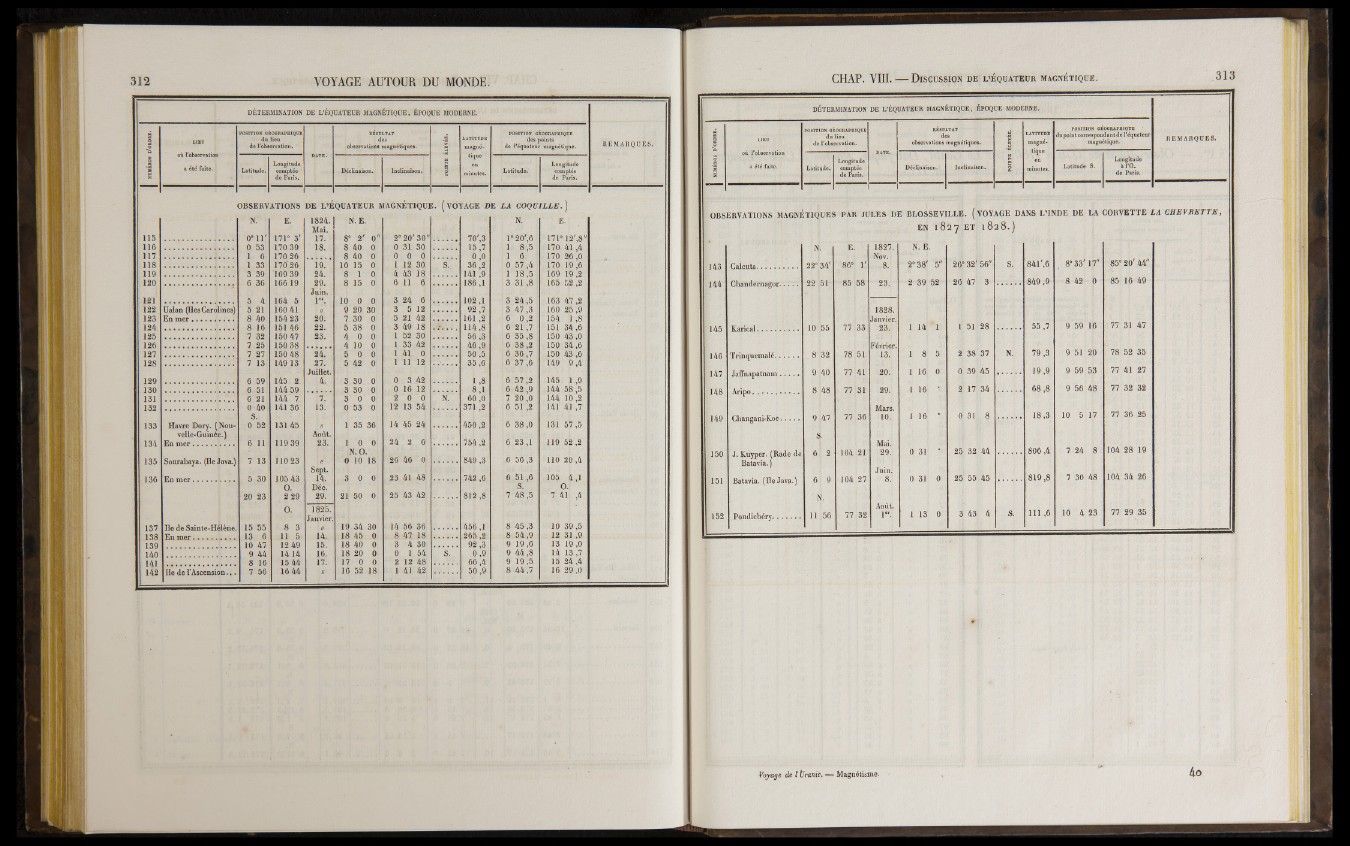 312 VOYAGE AUTOUR DU MONDE.
DÉTERMINATION DE L'ÉQUATEUR MAGNÉTIQUE, ÉPOQUE MODERNE.
NUMÉROS D'ORDRE.
LIEU
où l'observation
a été faite.
POSITION GÉOGRAPHIQUE
du lieu
de l'observation.
Latitude.
Longitude
comptée
de Paris.
DATE.
RÉSULTAT
des
observations magnétiques.
Déclinaison.
Inclinaison.
POINTE ÉLEVÉE.
LATITUDE
magné-
tique
en
minutes.
POSITION GÉOGRAPHIQUE
des points
de l'équateur magnétique.
Latitude.
Longitude
comptée
de Paris.
REMARQUES.
OBSERVATIONS DE L'ÉQUATEUR MAGNÉTIQUE. (VOYAGE DE LA COQUILLE.)
N. E. 1824. N. E. N. E.
Mai.
115 0° 11' 171° 3' 17. 8° 2' 0" 2° 20' 30" 70',3 1° 20',6 171° 12',8"
116 0 53 170 39 18. 8 40 0 0 31 30 15 ,7 1 8 ,5 170 41 ,4
117 1 6 170 26 8 40 0 0 0 0 0 ,0 1 6 170 26 ,0
118 1 33 170 26 19. 10 15 0 1 12 30 S. 36 ,2 0 57 ,4 170 19 ,6
119 3 39 169 39 24. 8 1 0 4 43 18 141 ,9 1 18 ,5 169 19 ,2
120 6 36 166 19 29. 8 15 0 6 11 6 186 ,1 3 31 ,8 165 52 ,2
Juin.
121 5 4 164 5 1er. 10 0 0 3 24 6 102 ,1 3 24 ,5 163 47 ,2
122 Ualan (Iles Carolines) 5 21 160 41 " 9 20 30 3 5 12 92 ,7 3 47 ,3 160 25 ,9
123 En mer 8 40 154 23 20. 7 30 0 5 21 42 161 ,2 6 0 ,2 154 1 ,8
124 8 16 151 46 22. 5 38 0 3 49 18 114 ,8 6 21 ,7 151 34 ,6
125 7 32 150 47 23. 4 0 0 1 52 30 56 ,3 6 35 ,8 150 43 ,0
126 7 25 150 38 4 10 0 1 33 42 46 ,9 6 38 ,2 150 34 ,6
127 7 27 150 48 24. 5 0 0 1 41 0 50 ,5 6 36 ,7 150 43 ,6
128 7 13 149 13 27. 5 42 0 1 11 12 35 ,6 6 37 ,6 149 9 ,4
Juillet.
129 6 59 145 2 4. 3 30 0 0 3 42 1 ,8 6 57 ,2 145 1 ,9
130 6 51 144 59 3 30 0 0 16 12 8 ,1 6 42 ,9 144 58 ,5
131 6 21 144 7 7. 3 0 0 2 0 0 N. 60 ,0 7 20 ,0 144 10 ,2
132 0 40 141 36 13. 0 53 0 12 13 54 371 ,2 6 51 ,2 141 41 ,7
S.
133 Havre Dory. (Nou- 0 52 131 45 " 1 35 36 14 45 24 450 ,2 6 38 ,0 131 57 ,5
velle-Guinée.) Août.
134 En mer 6 11 119 39 23. 1 0 0 24 2 6 754 ,2 6 23 ,1 119 52 ,2
N. O.
135 Sourabaya. (Ile Java.) 7 13 110 23 " 0 10 18 26 46 0 840 ,3 6 56 ,3 110 20 ,4
Sept.
136 En mer 5 30 105 43 14. 3 0 0 23 41 48 742 ,6 6 51 ,6 105 4 ,1
O. Déc. S. O.
20 23 2 29 29. 21 50 0 25 43 42 812 ,8 7 48 ,5 7 41 ,4
O. 1825.
Janvier.
137 Ile de Sainte-Hélène. 15 55 8 3 " 19 34 30 14 56 36 456 ,1 8 45 ,3 10 39 ,5
138 En mer 13 6 11 5 14. 18 45 0 8 47 18 265 ,2 8 54 ,9 12 31 ,9
139 10 47 12 49 15. 18 40 0 3 4 30 92 ,3 9 19 ,6 13 19 ,0
140 9 44 14 14 16. 18 20 0 0 1 54 S. 0 ,9 9 44 ,8 14 13 ,7
141 8 16 15 44 17. 17 0 0 2 12 48 66 ,4 9 19 ,5 15 24 ,4
142 Ile de l'Ascension... 7 56 16 44 " 16 52 18 1 41 42 50 ,9 8 44 ,7 16 29 ,0
CHAP. VIII. — DISCUSSION DE L'ÉQUATEUR MAGNÉTIQUE. 313
DÉTERMINATION DE L'ÉQUATEUR MAGNÉTIQUE, ÉPOQUE MODERNE.
NUMÉROS D'ORDRE.
LIEU
où l'observation
a été faite.
POSITION GÉOGRAPHIQUE
du lieu
de l'observation.
Latitude.
Longitude
comptée
de Paris.
DATE.
RÉSULTAT
des
observations magnétiques.
Déclinaison.
Inclinaison.
POINTE ÉLEVÉE.
LATITUDE
magné-
tique
en
minutes.
POSITION GÉOGRAPHIQUE
du point correspondant de l'équateur
magnétique.
Latitude S.
Longitude
à l'O.
de Paris.
REMARQUES.
OBSERVATIONS MAGNÉTIQUES PAR JULES DE BLOSSEVILLE. (VOYAGE DANS L'INDE DE LA CORVETTE LA CHEVRETTE,
EN 1827 ET 1828.)
N. E. 1827. N. E.
Nov.
143 Calcuta 22° 34' 86° 1' 8. 2° 38' 5" 26° 32' 56" S. 841',6 8° 33' 17" 85° 20' 44"
144 Chandernagor 22 51 85 58 23. 2 39 52 26 47 3 849 ,0 8 42 0 85 16 49
1828.
Janvier.
145 Karical 10 55 77 33 23. 1 14 1 1 51 28 55 ,7 9 59 16 77 31 47
Février.
146 Trinquemalé 8 32 78 51 13. 1 8 5 2 38 37 N. 79 ,3 9 51 20 78 52 35
147 Jaffnapatnam 9 40 77 41 20. 1 16 0 0 39 45 19 ,9 9 59 53 77 41 27
148 Aripo 8 48 77 31 29. 1 16 " 2 17 34 68 ,8 9 56 48 77 32 32
Mars.
149 Changani-Koe 9 47 77 36 10. 1 16 " 0 31 8 18 ,3 10 5 17 77 36 25
S.
Mai.
150 J. Kuyper. (Rade de 6 2 104 21 29. 0 31 " 25 32 44 806 ,4 7 24 8 104 28 19
Batavia.)
Juin.
151 Batavia. (Ile Java.) 6 9 104 27 8. 0 31 0 25 55 45 819 ,8 7 30 48 104 34 26
N.
Août.
152 Pondichéry 11 56 77 32 1er. 1 13 0 3 43 4 S. 111 ,6 10 4 23 77 29 35
Voyage de l'Uranie. — Magnétisme. 40